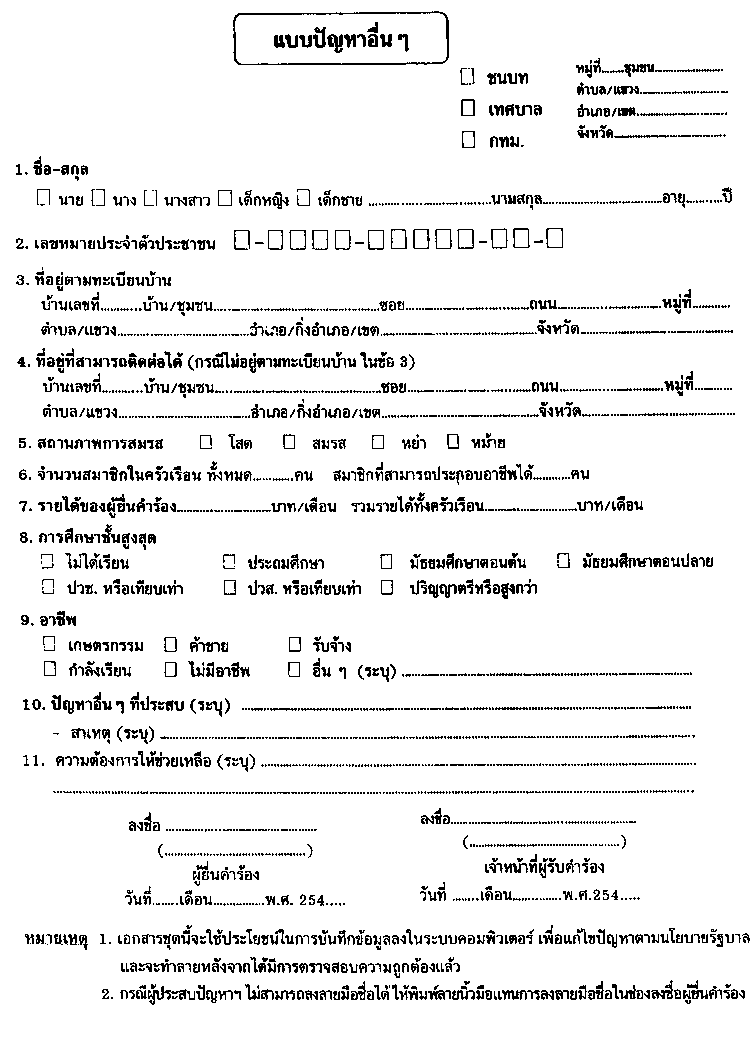 แบบปัญหาอื่น ๆ
☐ ชนบท
☐ เทศบาล
☐ กทม.
หมู่ที่.......ชุมชน.....................
ตำบล/แขวง...........................
อำเภอ/เขต............................
จังหวัด.................................
1. ชื่อ-สกุล
☐ นาย ☐ นาง ☐ นางสาว ☐ เด็กหญิง ☐ เด็กชาย ..............................นามสกุล..............................อายุ.........ปี
2. เลขหมายประจำตัวประชาชน ☐-☐☐☐☐-☐☐☐☐☐-☐☐-☐
3. ที่อยู่ตามทะเบียนบ้าน
บ้านเลขที่...........บ้าน/ชุมชน........................................ซอย....................................ถนน.........................หมู่ที่..........
ตำบล/แขวง................................อำเภอ/กิ่งอำเภอ/เขต......................................จังหวัด......................................
4. ที่อยู่ที่สามารถติดต่อได้ (กรณีไม่อยู่ตามทะเบียนบ้าน ในข้อ 3)
บ้านเลขที่...........บ้าน/ชุมชน........................................ซอย....................................ถนน.........................หมู่ที่..........
ตำบล/แขวง................................อำเภอ/กิ่งอำเภอ/เขต......................................จังหวัด......................................
5. สถานภาพการสมรส ☐ โสด ☐ สมรส ☐ หย่า ☐ หม้าย
6. จำนวนสมาชิกในครัวเรือน ทั้งหมด...........คน สมาชิกที่สามารถประกอบอาชีพได้..........คน
7. รายได้ของผู้ยื่นคำร้อง.......................บาท/เดือน รวมรายได้ทั้งครัวเรือน.......................บาท/เดือน
8. การศึกษาชั้นสูงสุด
☐ ไม่ได้เรียน ☐ ประถมศึกษา ☐ มัธยมศึกษาตอนต้น ☐ มัธยมศึกษาตอนปลาย
☐ ปวช. หรือเทียบเท่า ☐ ปวส. หรือเทียบเท่า ☐ ปริญญาตรีหรือสูงกว่า
9. อาชีพ
☐ เกษตรกรรม ☐ ค้าขาย ☐ รับจ้าง
☐ กำลังเรียน ☐ ไม่มีอาชีพ ☐ อื่น ๆ (ระบุ) ......................................................
10. ปัญหาอื่น ๆ ที่ประสบ (ระบุ) ......................................................
- สาเหตุ (ระบุ) ......................................................
11. ความต้องการให้ช่วยเหลือ (ระบุ) ......................................................
......................................................
ลงชื่อ ......................................
(....................................)
ผู้ยื่นคำร้อง
วันที่.......เดือน.............พ.ศ. 254.....
ลงชื่อ.............................................
(......................................)
เจ้าหน้าที่ผู้รับคำร้อง
วันที่ .......เดือน.............พ.ศ.254.....
หมายเหตุ 1. เอกสารชุดนี้จะใช้ประโยชน์ในการบันทึกข้อมูลลงในระบบคอมพิวเตอร์ เพื่อแก้ไขปัญหาตามนโยบายรัฐบาล
และจะทำลายหลังจากได้มีการตรวจสอบความถูกต้องแล้ว
2. กรณีผู้ประสบปัญหาฯ ไม่สามารถลงลายมือชื่อได้ ให้พิมพ์ลายนิ้วมือแทนการลงลายมือชื่อในช่องลงชื่อผู้ยื่นคำร้อง